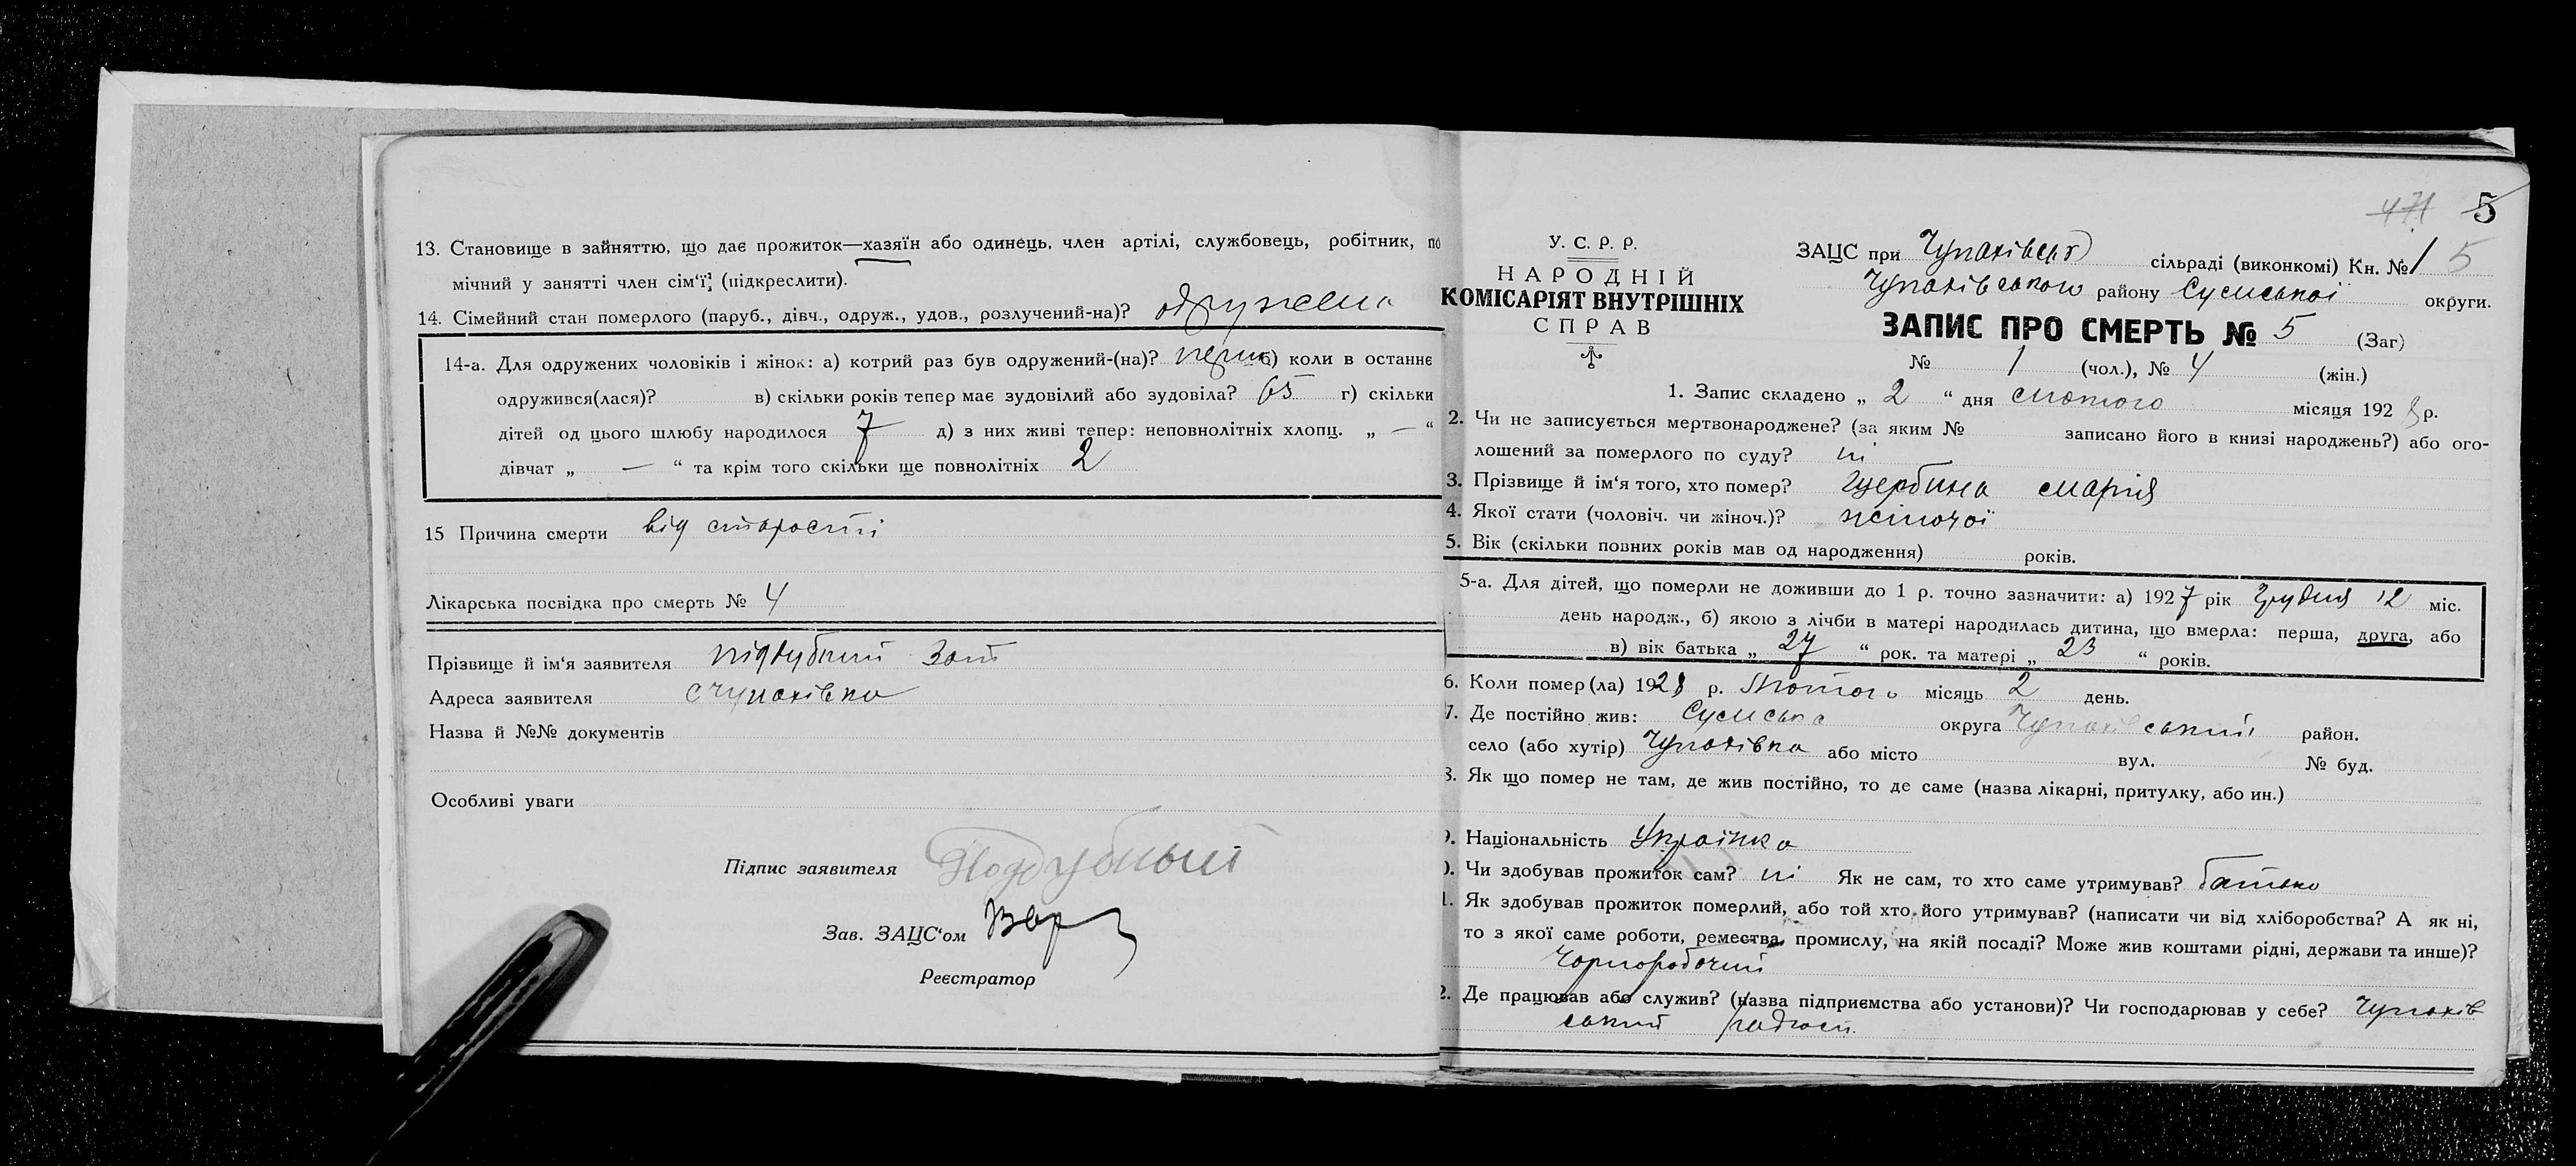 13. Становище в зайняттю, що дає прожиток—хазяїн або одинець, член артілі, службовець, робітник, по
мічний у занятті член сім‘ї; (підкреслити).
14. Сімейний стан померлого (паруб., дівч., одруж., удов., розлучений-на)? одружена
14-а. Для одружених чоловіків і жінок: а) котрий раз був одружений-(на)? перш б) коли в останнє
одружився(лася)? в) скільки років тепер має зудовілий або зудовіла? 65 г) скільки
дітей од цього шлюбу народилося 7 д) з них живі тепер: неповнолітніх хлопц. „ — “
дівчат „ — “ та крім того скільки ще повнолітніх 2
15 Причина смерти від старости
Лікарська посвідка про смерть № 4
Прізвище й ім‘я заявителя Піддубний
Адреса заявителя с Чупахівка
Назва й №№ документів
Особливі уваги
Підпис заявителя Поддубный
Зав. ЗАЦС‘ом
Реєстратор
471 5
У. С. Р. Р.
НАРОДНІЙ
КОМІСАРІЯТ ВНУТРІШНІХ
СПРАВ
ЗАЦС при Чупахівськ сільраді (виконкомі) Кн. № 1 5
Чупахівського району Сумської округи.
ЗАПИС ПРО СМЕРТЬ № 5 (Заг)
№ 1 (чол.), № 4 (жін.)
1. Запис складено „ 2 “ дня лютого місяця 1928 р.
2. Чи не записується мертвонароджене? (за яким № записано його в книзі народжень?) або ого-
лошений за померлого по суду? ні
3. Прізвище й ім‘я того, хто помер? Щербина Марія
4. Якої стати (чоловіч. чи жіноч.)? жіночої
5. Вік (скільки повних років мав од народження) років.
5-а. Для дітей, що померли не доживши до 1 р. точно зазначити: а) 1927 рік Грудня 12 міс.
день народж., б) якою з лічби в матері народилась дитина, що вмерла: перша, друга, або
в) вік батька „ 27 “ рок. та матері „ 23 “ років.
6. Коли помер(ла) 1928 р. Лютого місяць 2 день.
7. Де постійно жив: Сумська округа Чупахівський район.
село (або хутір) Чупахівка або місто вул. № буд.
8. Як що помер не там, де жив постійно, то де саме (назва лікарні, притулку, або ин.)
9. Національність Українка
0. Чи здобував прожиток сам? ні Як не сам, то хто саме утримував? батько
1. Як здобував прожиток померлий, або той хто його утримував? (написати чи від хліборобства? А як ні,
то з якої саме роботи, ремества, промислу, на якій посаді? Може жив коштами рідні, держави та инше)?
Чорноробочий
2. Де працював або служив? (назва підприємства або установи)? Чи господарював у себе? Чупахів
ський радгосп.